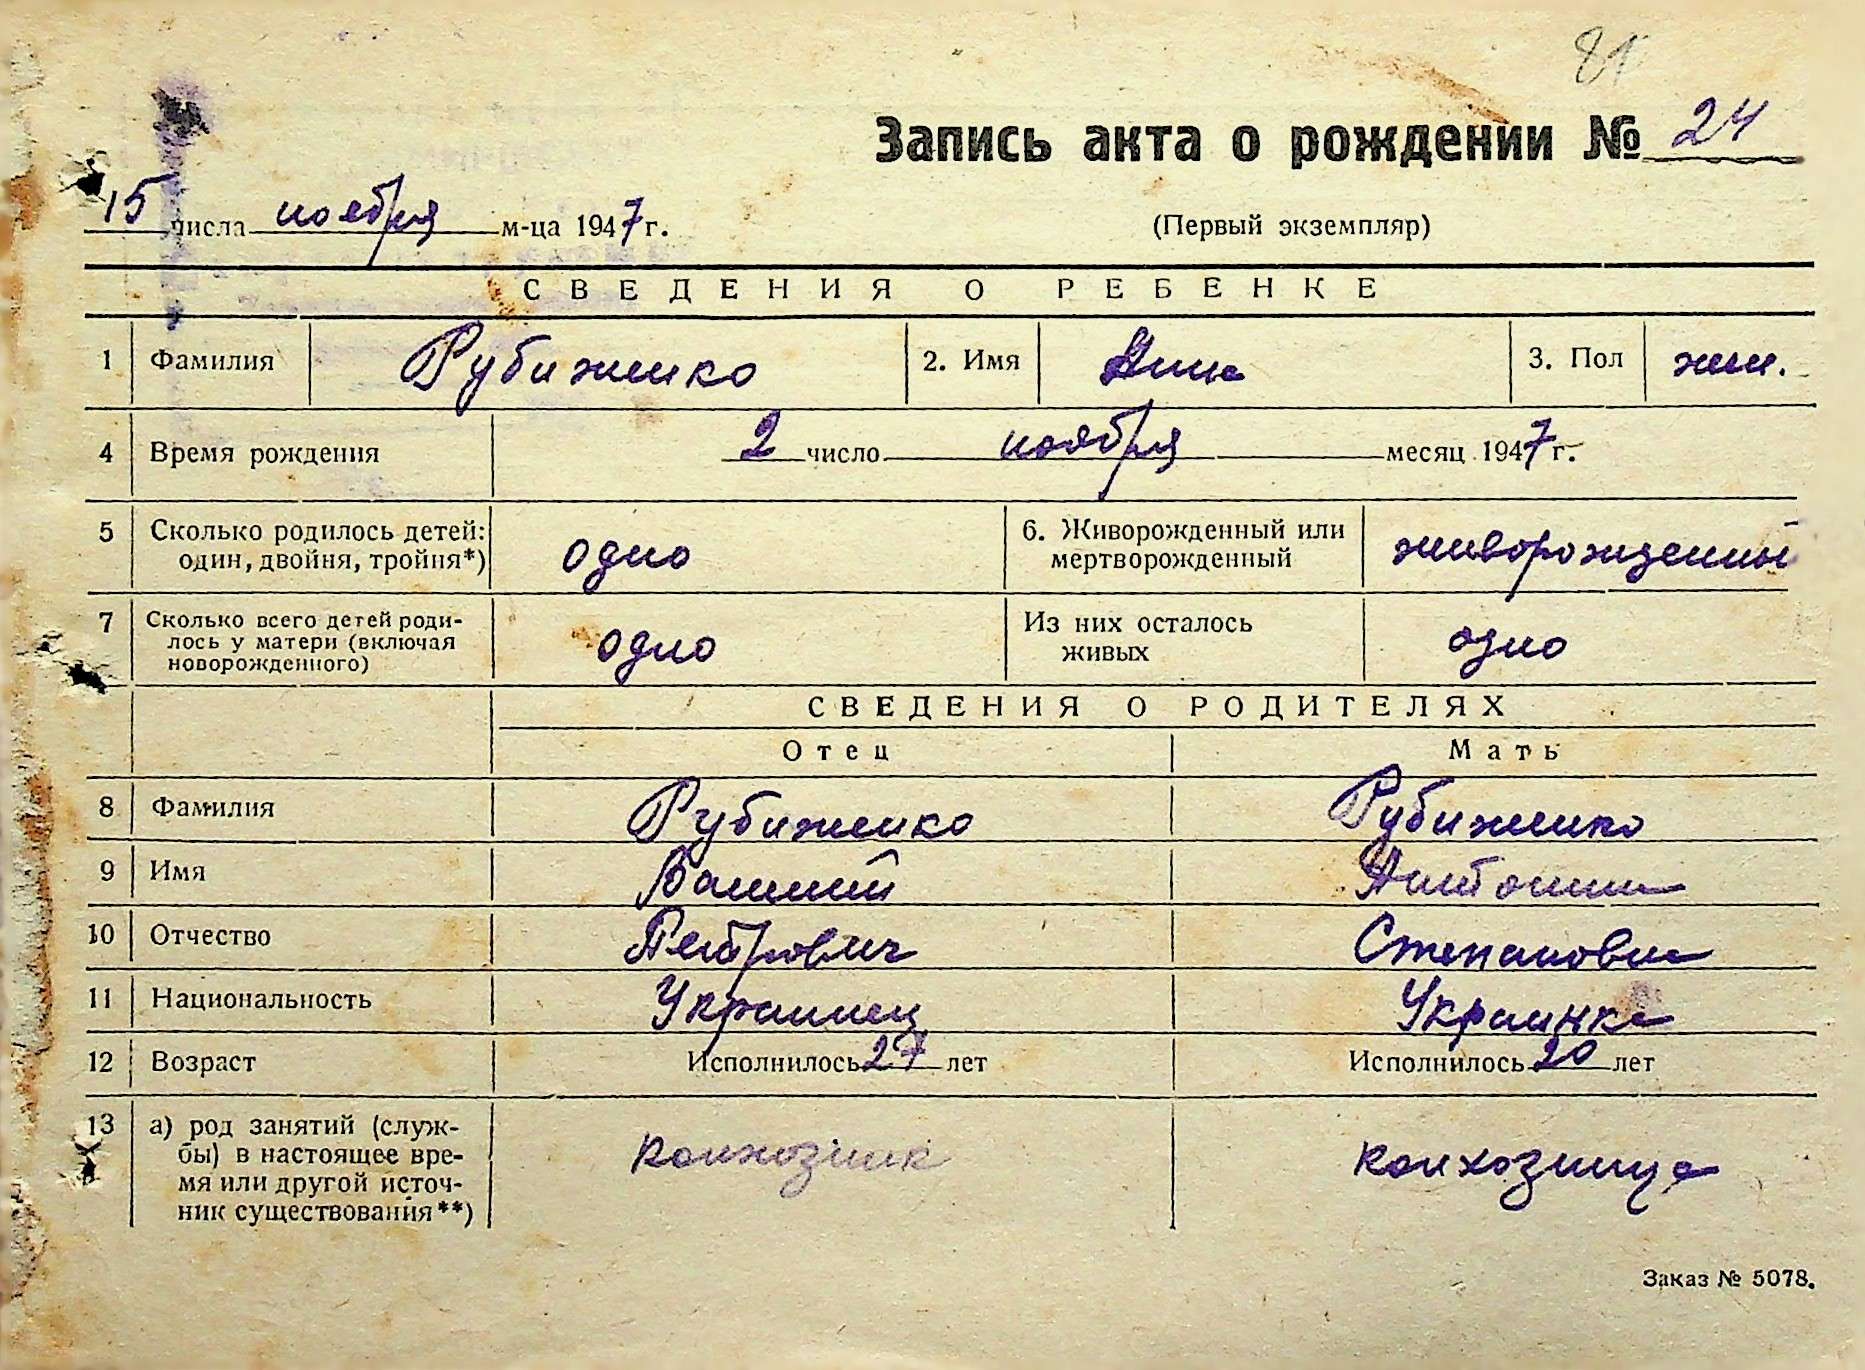 81
Запись акта о рождении № 24
15 числа ноября м-ца 1947 г.
(Первый экземпляр)
СВЕДЕНИЯ О РЕБЕНКЕ
1 Фамилия Рубиженко 2. Имя Нина 3. Пол жен.
4 Время рождения 2 число ноября месяц 1947 г.
5 Сколько родилось детей: один, двойня, тройня*) одно 6. Живорожденный или мертворожденный живорожденный
7 Сколько всего детей роди-
лось у матери (включая
новорожденного) одно Из них осталось живых одно
СВЕДЕНИЯ О РОДИТЕЛЯХ
Отец Мать
8 Фамилия Рубиженко Рубиженко
9 Имя Василий Антонина
10 Отчество Петрович Степановна
11 Национальность Украинец Украинка
12 Возраст Исполнилось 27 лет Исполнилось 20 лет
13 а) род занятий (служ-
бы) в настоящее вре-
мя или другой источ-
ник существования**) колхозник колхозница
Заказ № 5078.